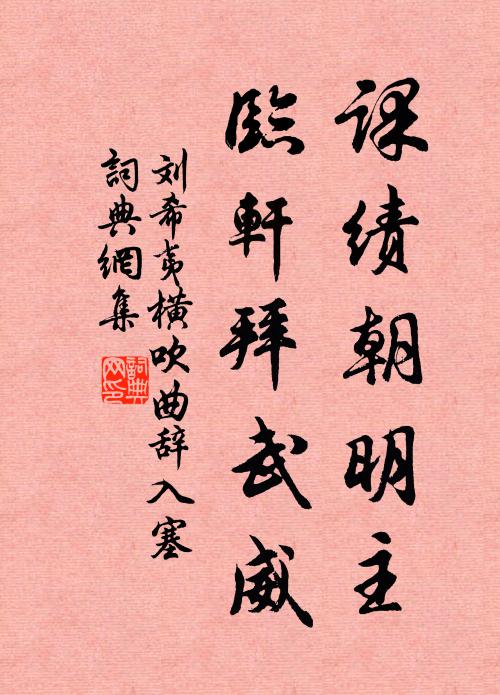 课绩朝明主
臨軒拜武威
刘希夷橫吹曲辞入塞
詞典網集
詞典网印